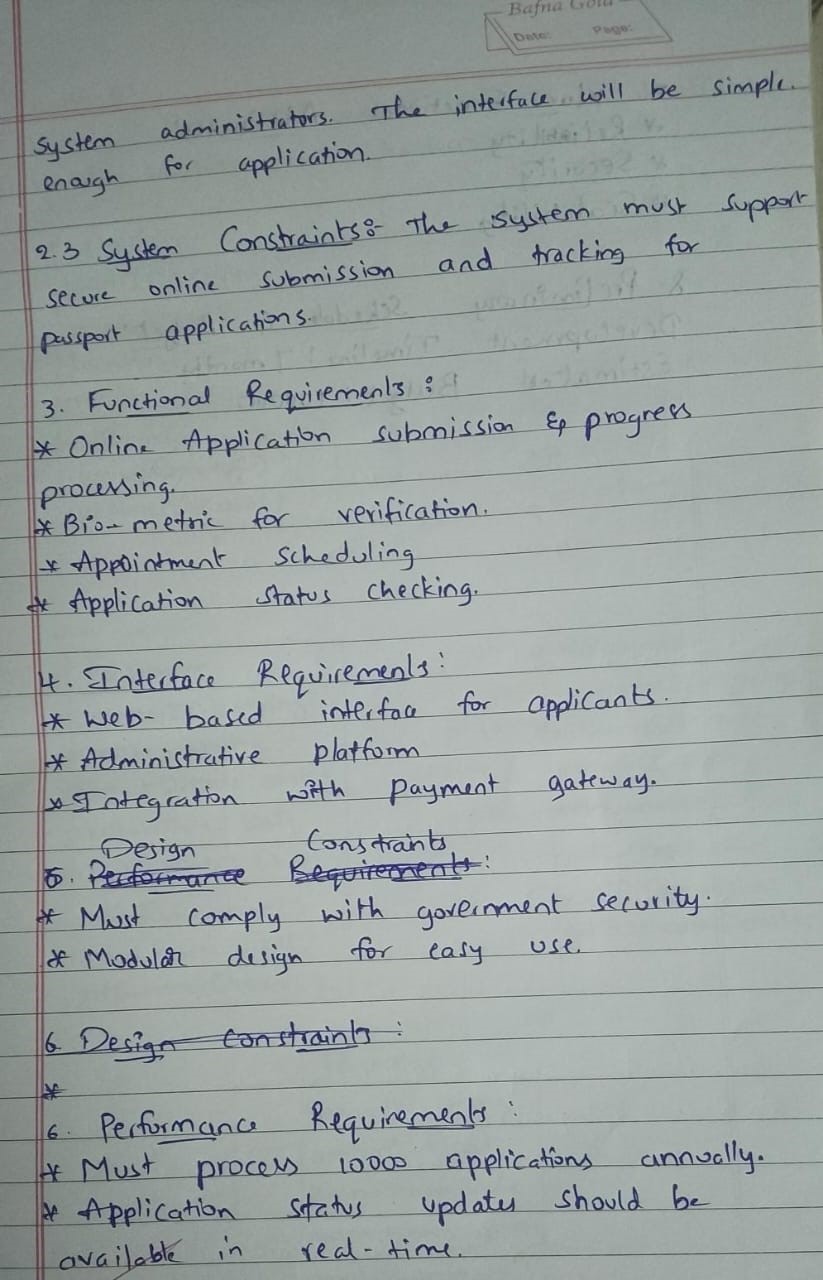 Bafna Gold
Date: Page:
System administrators. The interface will be simple.
enough for application.
2.3 System Constraints:- The system must support
secure online submission and tracking for
passport applications.
3. Functional Requirements:
* Online Application submission & progress
processing.
* Bio-metric for verification.
* Appointment Scheduling
* Application Status checking.
4. Interface Requirements:
* Web-based interface for applicants.
* Administrative platform
* Integration with payment gateway.
Design Constraints
5. Performance Requirements:
* Must comply with government security.
* Modular design for easy use.
6. Design constraints:
*
6. Performance Requirements:
* Must process 10000 applications annually.
* Application status updates should be
available in real-time.